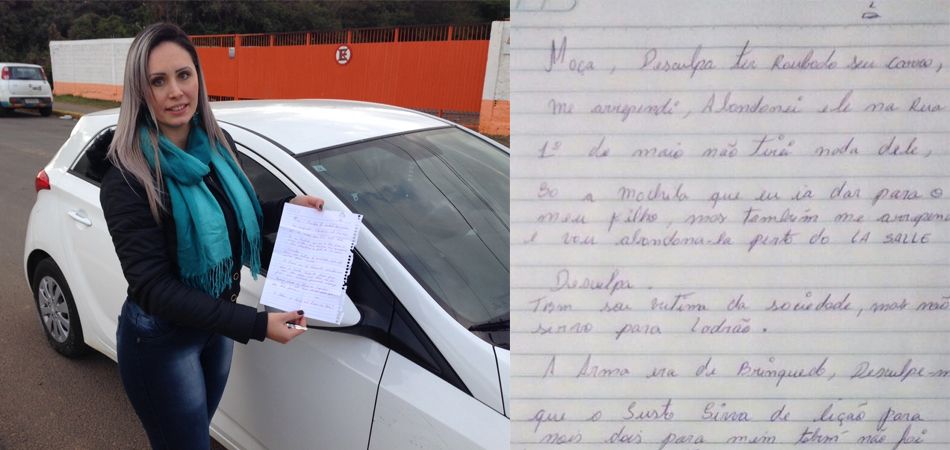 Moça, Desculpa ter Roubado seu carro,
me arrependi, Abandonei ele na Rua
1º de maio não tirei nada dele,
So a mochila que eu ia dar para o
meu filho, mas também me arrepen
e vou abandona-la perto do LA SALLE
Desculpa.
Tbm sou vitima da sociedade, mas nao
sirvo para ladrão.
A Arma era de Brinquedo, Desculpe-m
que o Susto Sirva de lição para
nois dois para mim tbm não foi
E